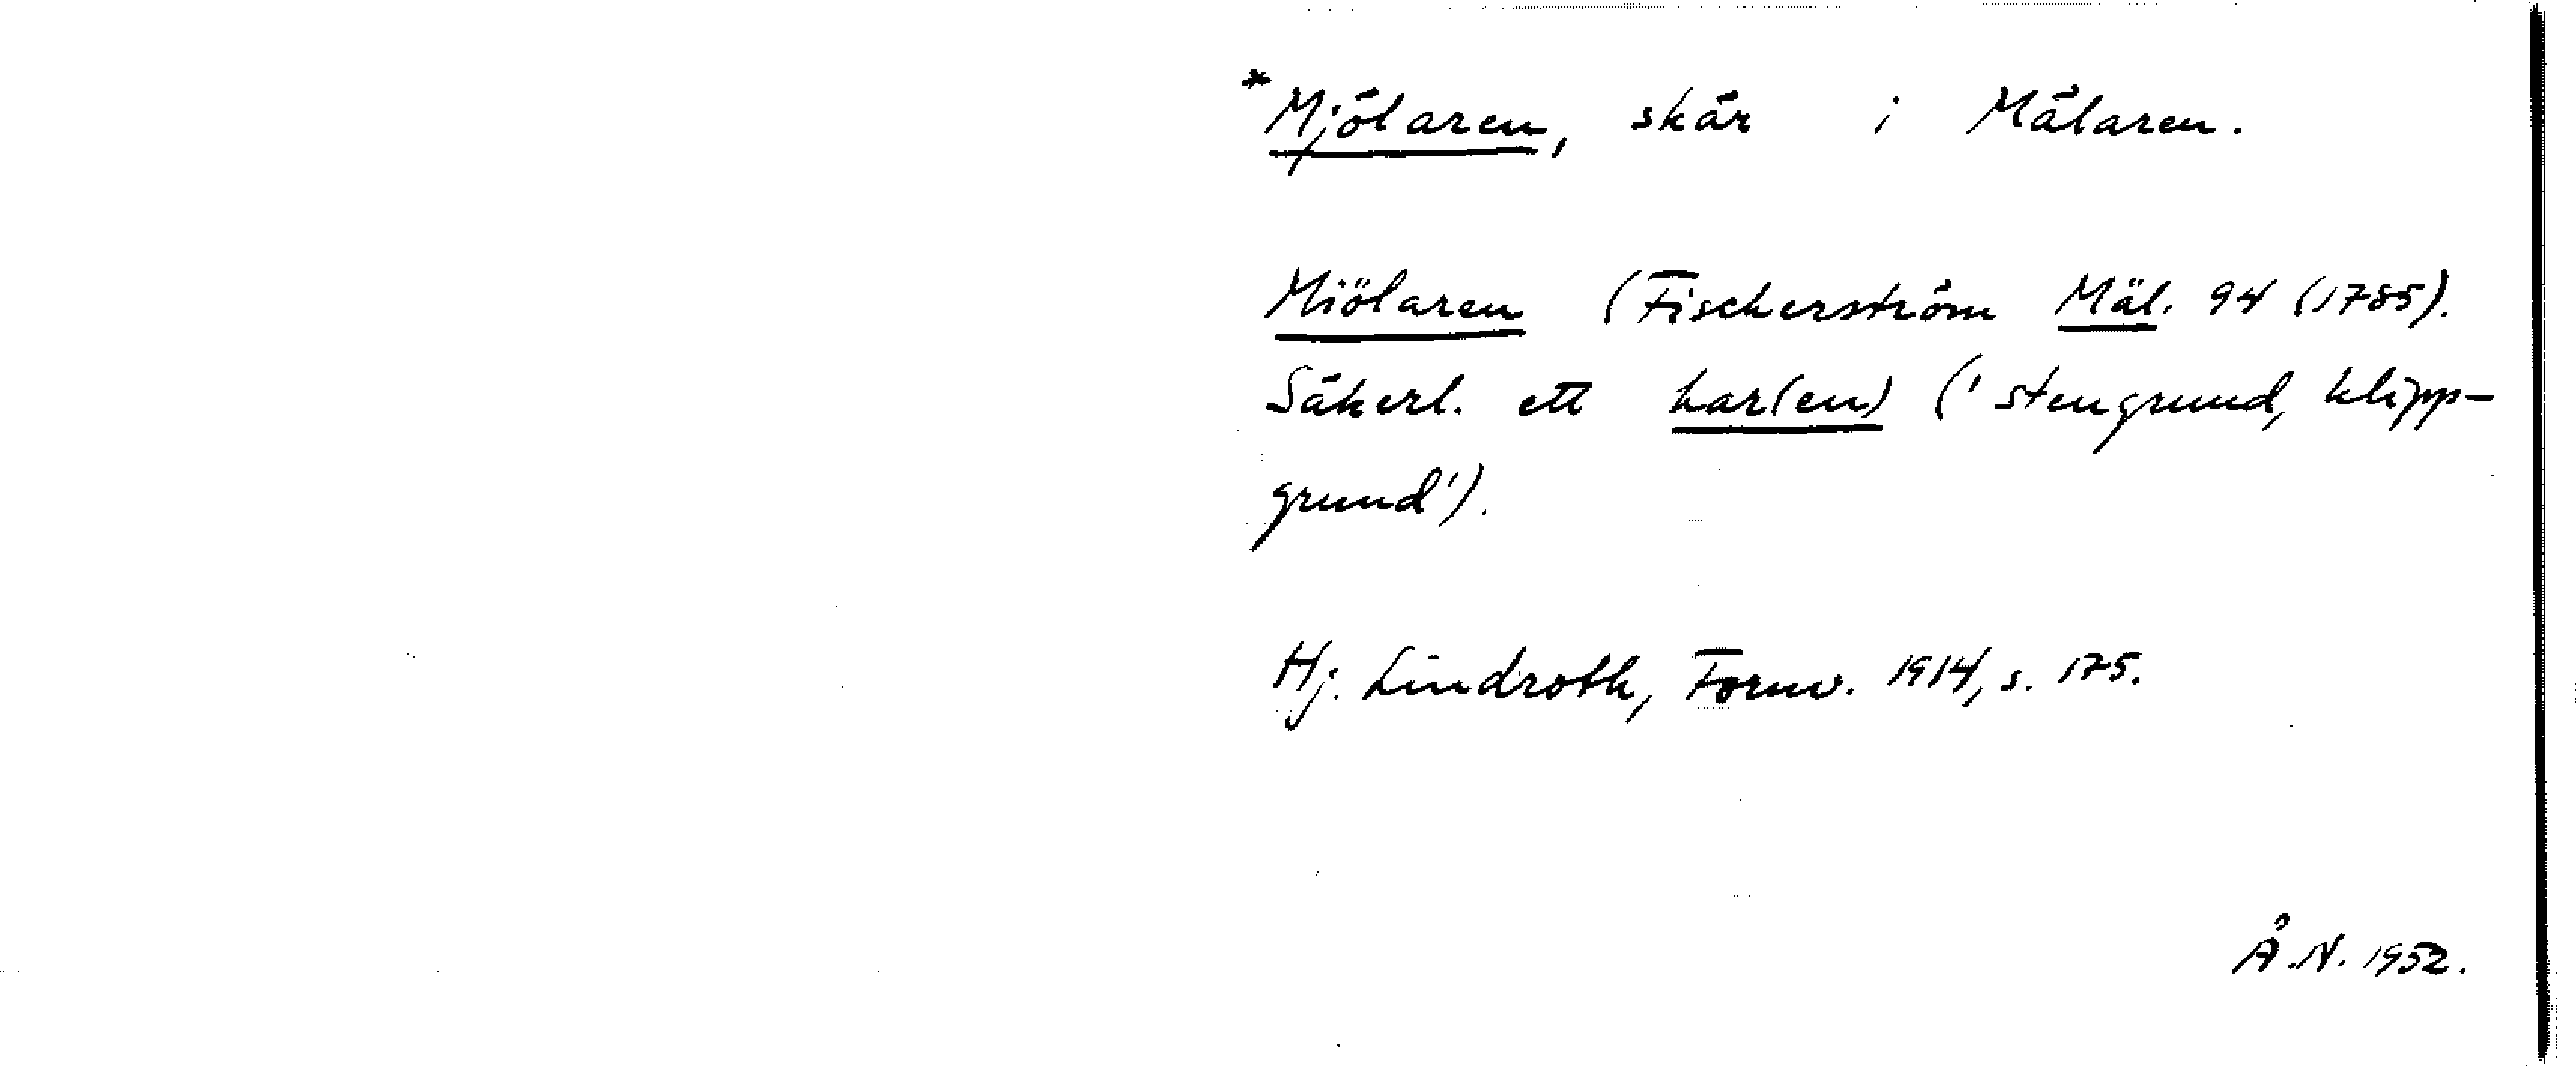 *Mjölaren, skär i Mälaren.
Miölaren (Fischerström Mäl. 94 (1785).
Säkerl. ett har(en) ('stengrund, klipp-
grund').
Hj. Lindroth, Fornv. 1914, s. 175.
Å.N. 1952.